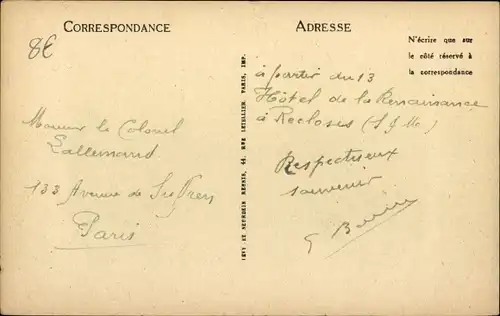 CORRESPONDANCE
ADRESSE
8€
N'écrire que sur
le côté réservé à
la correspondance
Monsieur le Colonel
Lallemand
133 Avenue de
Paris
LÉVY ET NEURDEIN RÉUNIS, 44, RUE LETELLIER, PARIS, IMP.
à partir du 13
Hôtel de la Renaissance
à Recloses (S & M)
Respectueux
souvenir